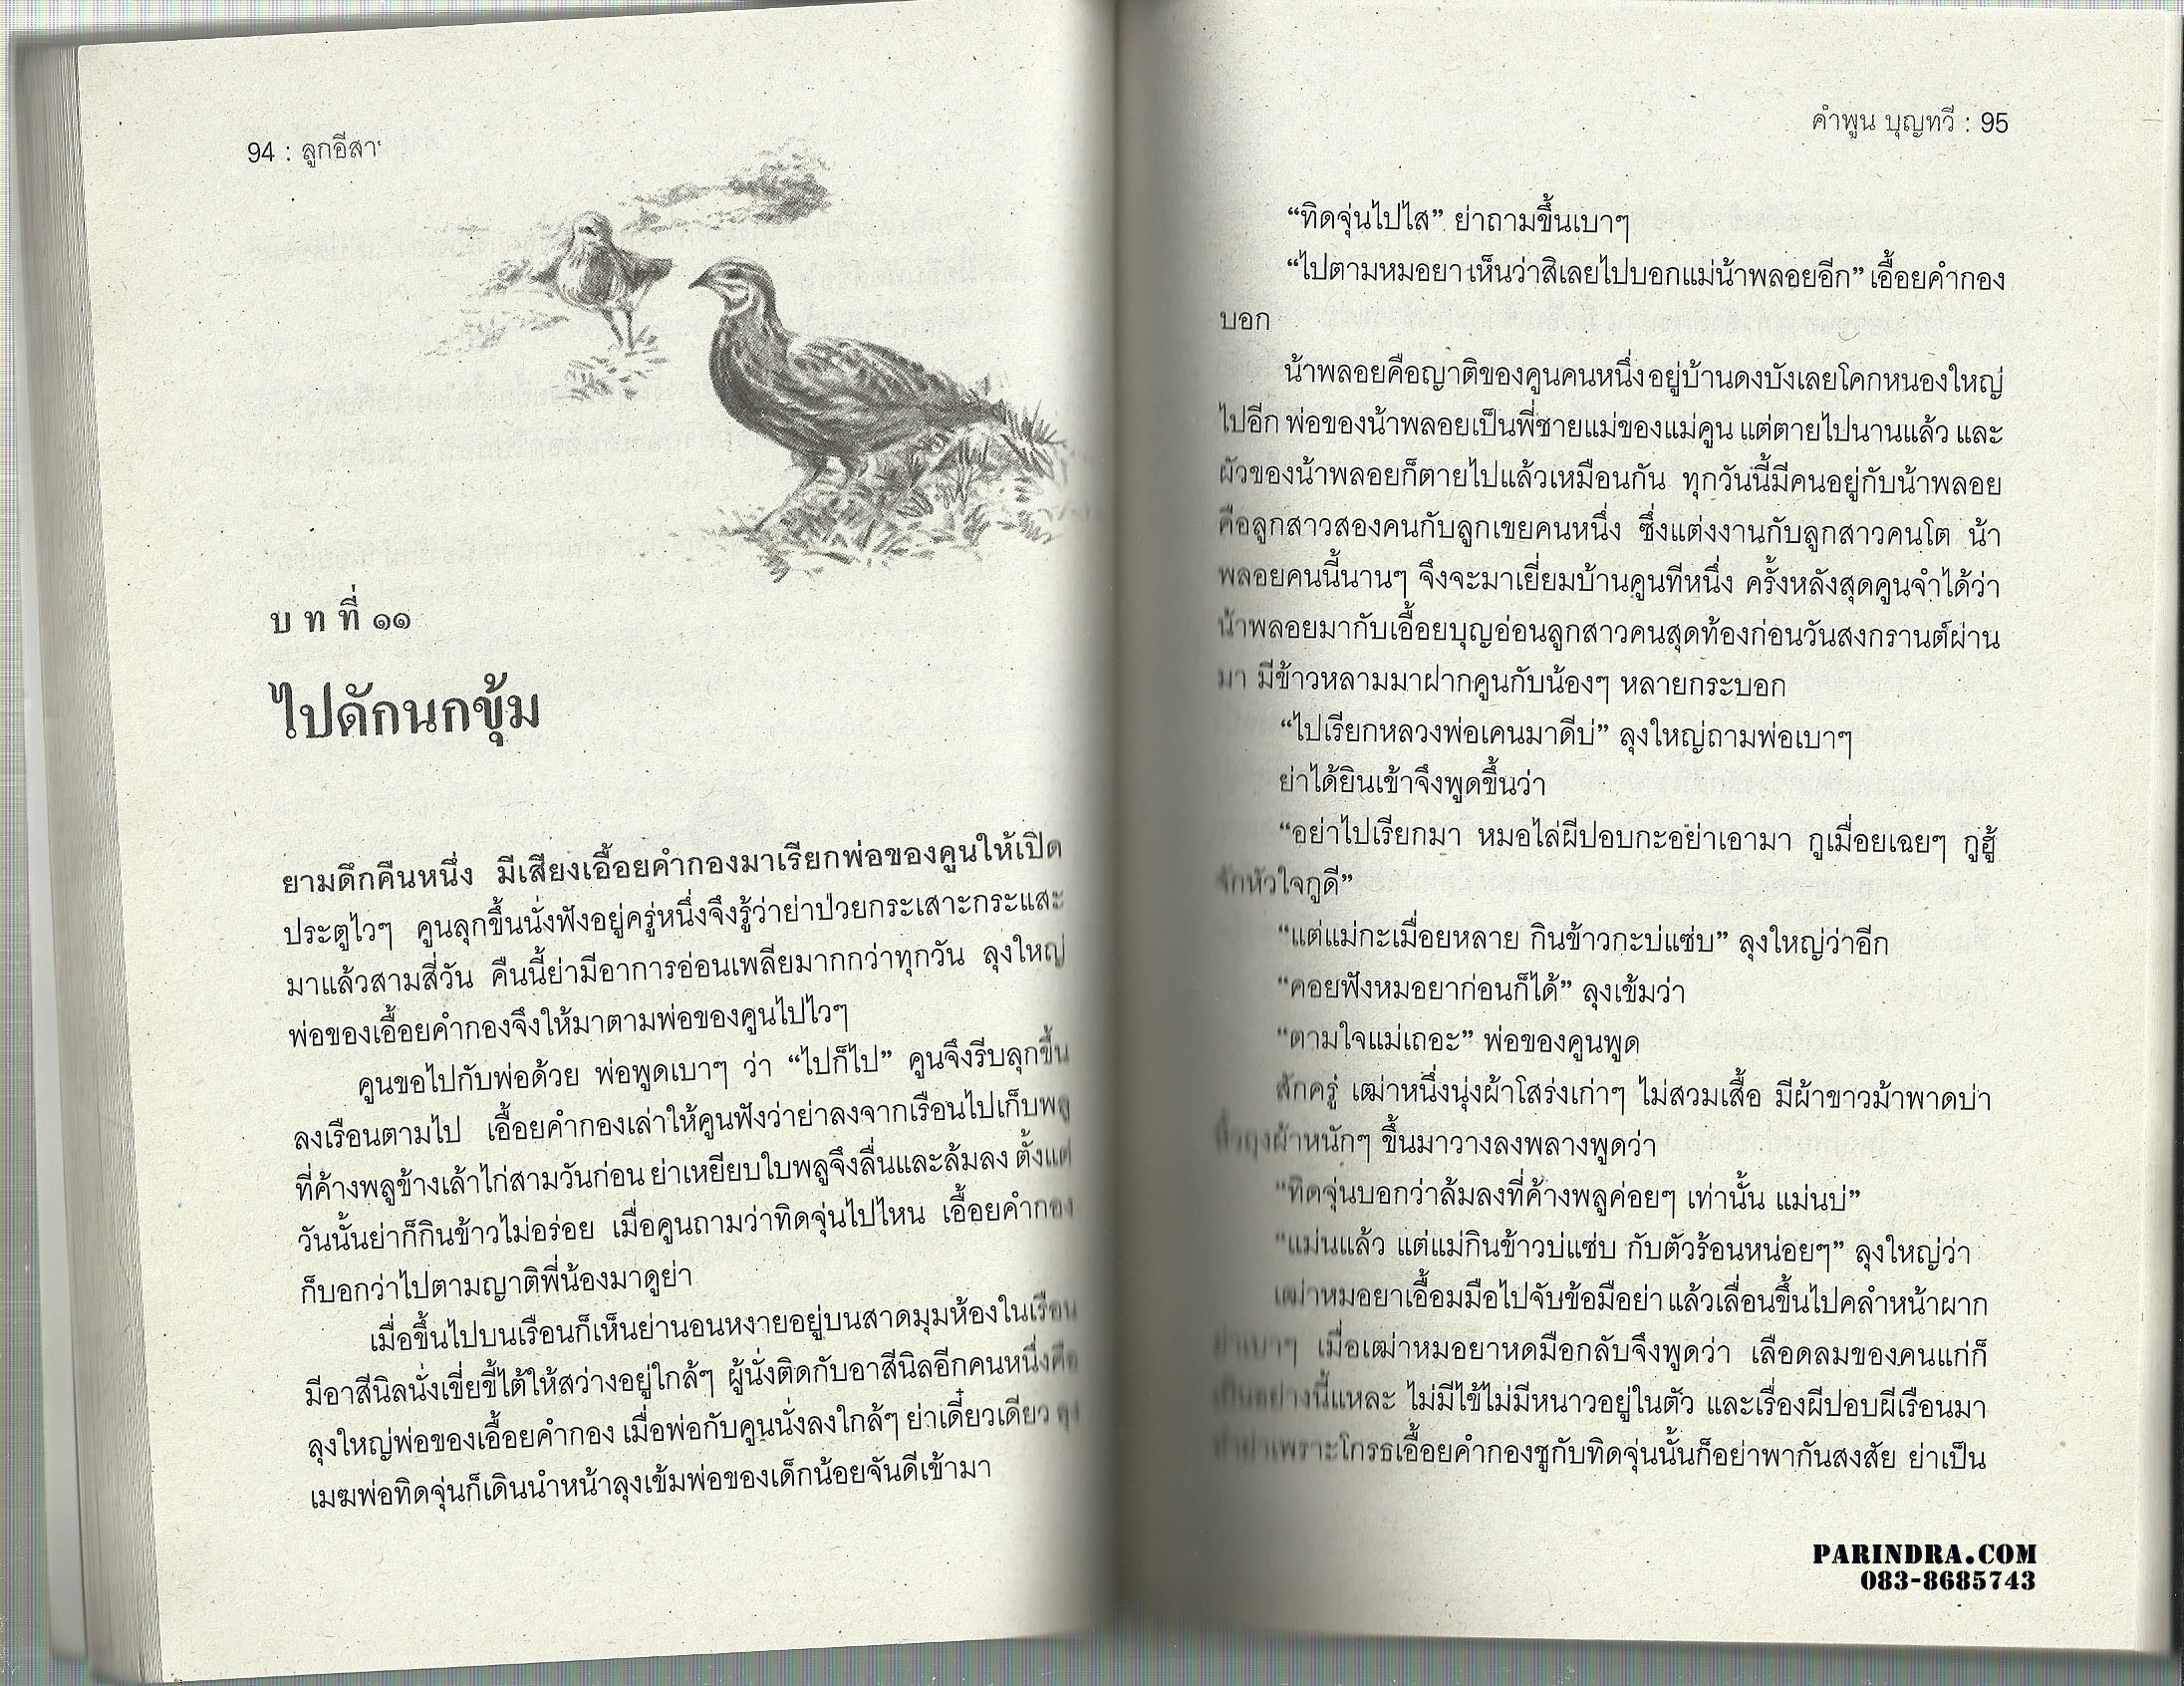 94 : ลูกอีสา
บ ท ที่ ๑๑
ไปดักนกขุ้ม
ยามดึกคืนหนึ่ง มีเสียงเอื้อยคำกองมาเรียกพ่อของคูนให้เปิด
ประตูไวๆ คูนลุกขึ้นนั่งฟังอยู่ครู่หนึ่งจึงรู้ว่าย่าป่วยกระเสาะกระแสะ
มาแล้วสามสี่วัน คืนนี้ย่ามีอาการอ่อนเพลียมากกว่าทุกวัน ลุงใหญ่
พ่อของเอื้อยคำกองจึงให้มาตามพ่อของคูนไปไวๆ
คูนขอไปกับพ่อด้วย พ่อพูดเบาๆ ว่า “ไปก็ไป” คูนจึงรีบลุกขึ้น
ลงเรือนตามไป เอื้อยคำกองเล่าให้คูนฟังว่าย่าลงจากเรือนไปเก็บพลู
ที่ค้างพลูข้างเล้าไก่สามวันก่อน ย่าเหยียบใบพลูจึงลื่นและล้มลง ตั้งแต่
วันนั้นย่าก็กินข้าวไม่อร่อย เมื่อคูนถามว่าทิดจุ่นไปไหน เอื้อยคำกอง
ก็บอกว่าไปตามญาติพี่น้องมาดูย่า
เมื่อขึ้นไปบนเรือนก็เห็นย่านอนหงายอยู่บนสาดมุมห้องในเรือน
มีอาสีนิลนั่งเขี่ยขี้ไต้ให้สว่างอยู่ใกล้ๆ ผู้นั่งติดกับอาสีนิลอีกคนหนึ่งคือ
ลุงใหญ่พ่อของเอื้อยคำกอง เมื่อพ่อกับคูนนั่งลงใกล้ๆ ย่าเดี๋ยวเดียว ลุง
เมฆพ่อทิดจุ่นก็เดินนำหน้าลุงเข้มพ่อของเด็กน้อยจันดีเข้ามา
คำพูน บุญทวี : 95
“ทิดจุ่นไปไส” ย่าถามขึ้นเบาๆ
“ไปตามหมอยา เห็นว่าสิเลยไปบอกแม่น้าพลอยอีก” เอื้อยคำกอง
บอก
น้าพลอยคือญาติของคูนคนหนึ่ง อยู่บ้านดงบังเลยโคกหนองใหญ่
ไปอีก พ่อของน้าพลอยเป็นพี่ชายแม่ของแม่คูน แต่ตายไปนานแล้ว และ
ผัวของน้าพลอยก็ตายไปแล้วเหมือนกัน ทุกวันนี้มีคนอยู่กับน้าพลอย
คือลูกสาวสองคนกับลูกเขยคนหนึ่ง ซึ่งแต่งงานกับลูกสาวคนโต น้า
พลอยคนนี้นานๆ จึงจะมาเยี่ยมบ้านคูนทีหนึ่ง ครั้งหลังสุดคูนจำได้ว่า
น้าพลอยมากับเอื้อยบุญอ่อนลูกสาวคนสุดท้องก่อนวันสงกรานต์ผ่าน
มา มีข้าวหลามมาฝากคูนกับน้องๆ หลายกระบอก
“ไปเรียกหลวงพ่อเคนมาดีบ่” ลุงใหญ่ถามพ่อเบาๆ
ย่าได้ยินเข้าจึงพูดขึ้นว่า
“อย่าไปเรียกมา หมอไล่ผีปอบกะอย่าเอามา กูเมื่อยเฉยๆ กูฮู้
จักหัวใจกูดี”
“แต่แม่กะเมื่อยหลาย กินข้าวกะบ่แซ่บ” ลุงใหญ่ว่าอีก
“คอยฟังหมอยาก่อนก็ได้” ลุงเข้มว่า
“ตามใจแม่เถอะ” พ่อของคูนพูด
สักครู่ เฒ่าหนึ่งนุ่งผ้าโสร่งเก่าๆ ไม่สวมเสื้อ มีผ้าขาวม้าพาดบ่า
หิ้วถุงผ้าหนักๆ ขึ้นมาวางลงพลางพูดว่า
“ทิดจุ่นบอกว่าล้มลงที่ค้างพลูค่อยๆ เท่านั้น แม่นบ่”
“แม่นแล้ว แต่แม่กินข้าวบ่แซ่บ กับตัวร้อนหน่อยๆ” ลุงใหญ่ว่า
เฒ่าหมอยาเอื้อมมือไปจับข้อมือย่า แล้วเลื่อนขึ้นไปคลำหน้าผาก
ย่าเบาๆ เมื่อเฒ่าหมอยาหดมือกลับจึงพูดว่า เลือดลมของคนแก่ก็
เป็นอย่างนี้แหละ ไม่มีไข้ไม่มีหนาวอยู่ในตัว และเรื่องผีปอบผีเรือนมา
ทำย่าเพราะโกรธเอื้อยคำกองชูกับทิดจุ่นนั้นก็อย่าพากันสงสัย ย่าเป็น
PARINDRA.COM
083-8685743